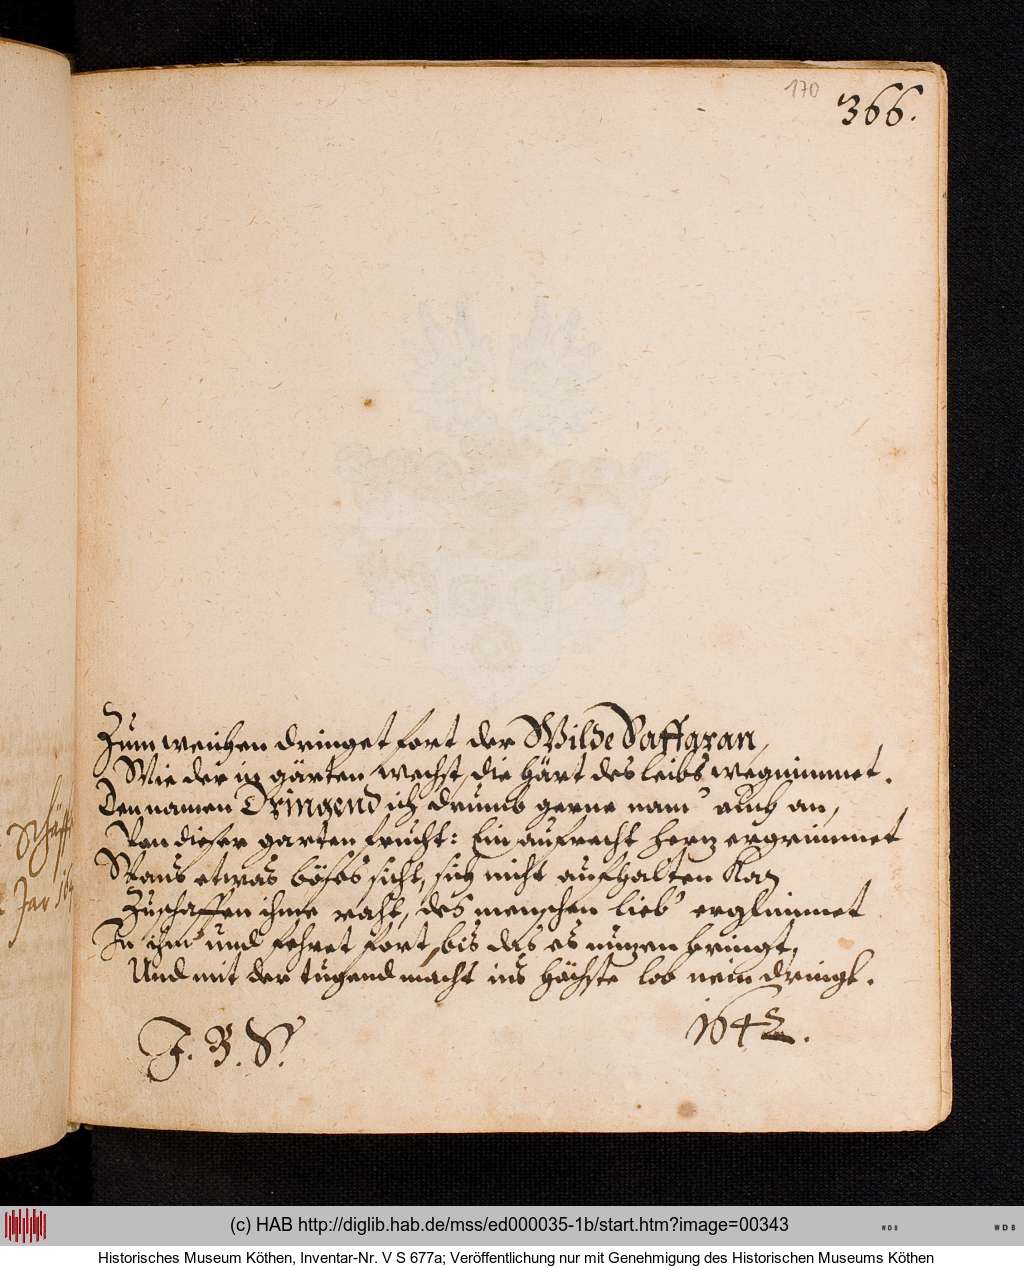 170
366.
Zum weichen dringet fort der Wilde Saffran,
Wie der in gärten wechst, die härt des leibs wegnimmet.
Den namen Dringend ich drumb gerne nam' auch an,
Von dieser garten frucht: Ein aufrecht hertz ergrimmet
Wans etwas böses sicht, sich nicht aufhalten kan
Zuschaffen ihme raht, des menschen lieb' erglimmet
In ihm' und fehret fort, bis das es nutzen bringt,
Und mit der tugend macht ins höchste lob nein dringt.
J. B. S.
1642.
Jar 16
(c) HAB http://diglib.hab.de/mss/ed000035-1b/start.htm?image=00343
W D B
W D B
Historisches Museum Köthen, Inventar-Nr. V S 677a; Veröffentlichung nur mit Genehmigung des Historischen Museums Köthen